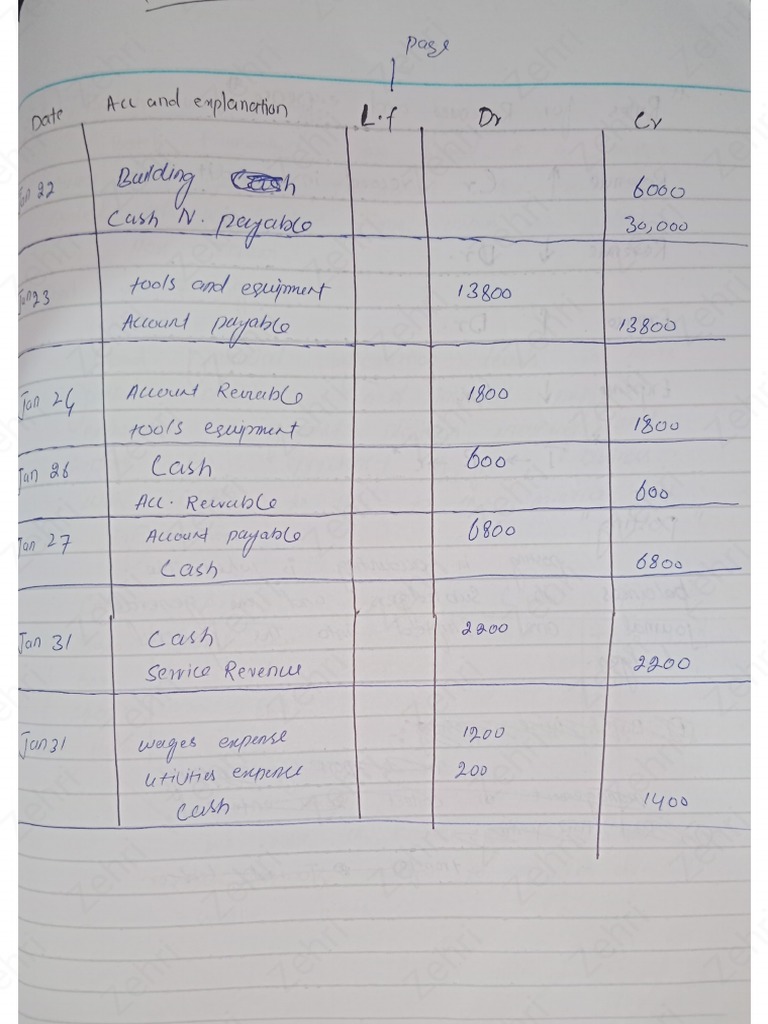 page
Date Acc and explanation L.f Dr Cr
Jan 22 Building 6000
Cash N. payable 30,000
Jan 23 tools and equipment 13800
Account payable 13800
Jan 24 Account Reivable 1800
tools equipment 1800
Jan 26 Cash 600
Acc. Reivable 600
Jan 27 Account payable 6800
Cash 6800
Jan 31 Cash 2200
Service Revenue 2200
Jan 31 wages expense 1200
utilities expence 200
Cash 1400
Zehri